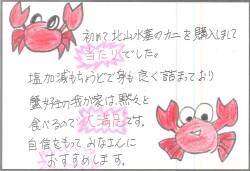 初めて北山水産のカニを購入しまして
当たりでした。
塩加減もちょうどで身も良く詰まっており
蟹好きの我が家は、黙々と
食べるので大満足です。
自信をもって、みなさんに
おすすめします。